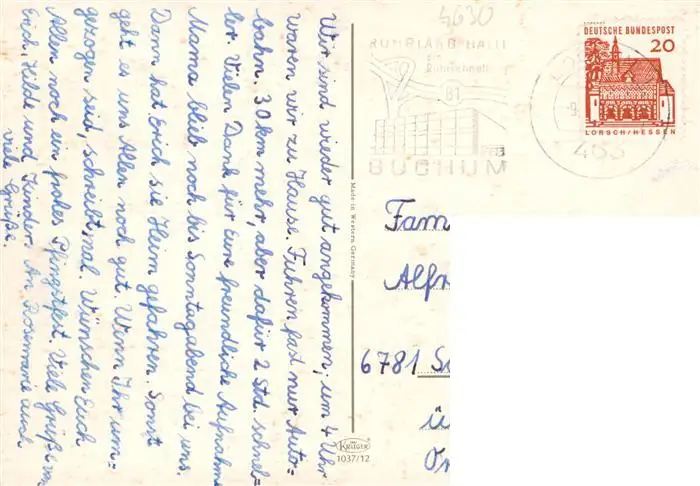 Wir sind wieder gut angekommen, um 4 Uhr
waren wir zu Hause. Fuhren fast nur Auto=
bahn. 30 km mehr, aber dafür 2 Std. schnel=
ler. Vielen Dank für Eure freundliche Aufnahme
Mama blieb noch bis Sonntagabend bei uns.
Dann hat Erich sie Heim gefahren. Sonst
geht es uns Allen noch gut. Wenn Ihr um=
gezogen seid, schreibt mal. Wünschen Euch
Allen noch ein frohes Pfingstfest. Viele Grüße von
Erich, Hilde und Kinder. An Rosemarie auch
viele Grüße.
Made in Western Germany
KRÜGER
1037/12
4630
RUHRLAND-HALLE
am
Ruhrschnell
B1
BOCHUM
463
DEUTSCHE BUNDESPOST
20
LORSCH/HESSEN
Fam
Alfr
6781 Sc
ü
Or